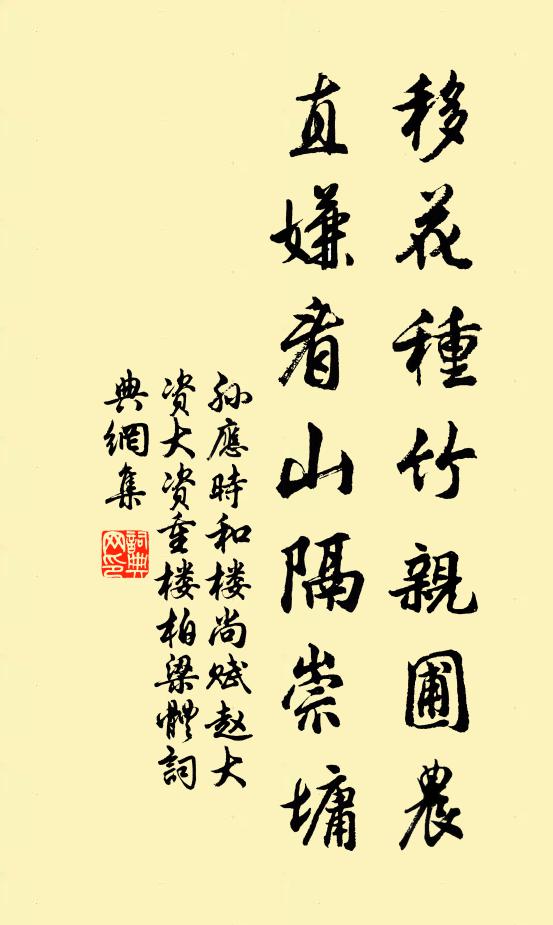 移花種竹親圃農
直嫌看山隔崇墉
孙應時和楼尚赋赵大
资大资重楼柏梁體詞
典網集
詞典
网印